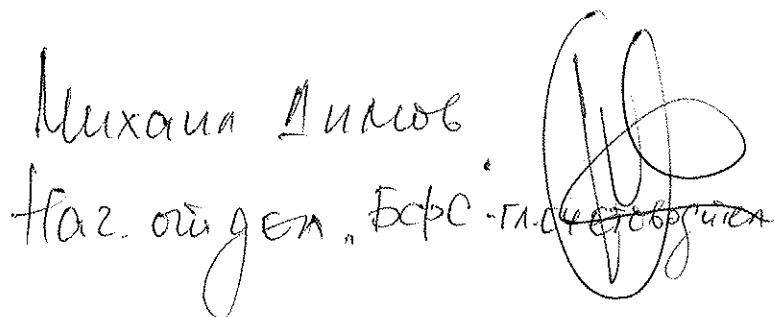 Михаил Димов
Нач. отдел „БФС"-гл. счетоводител